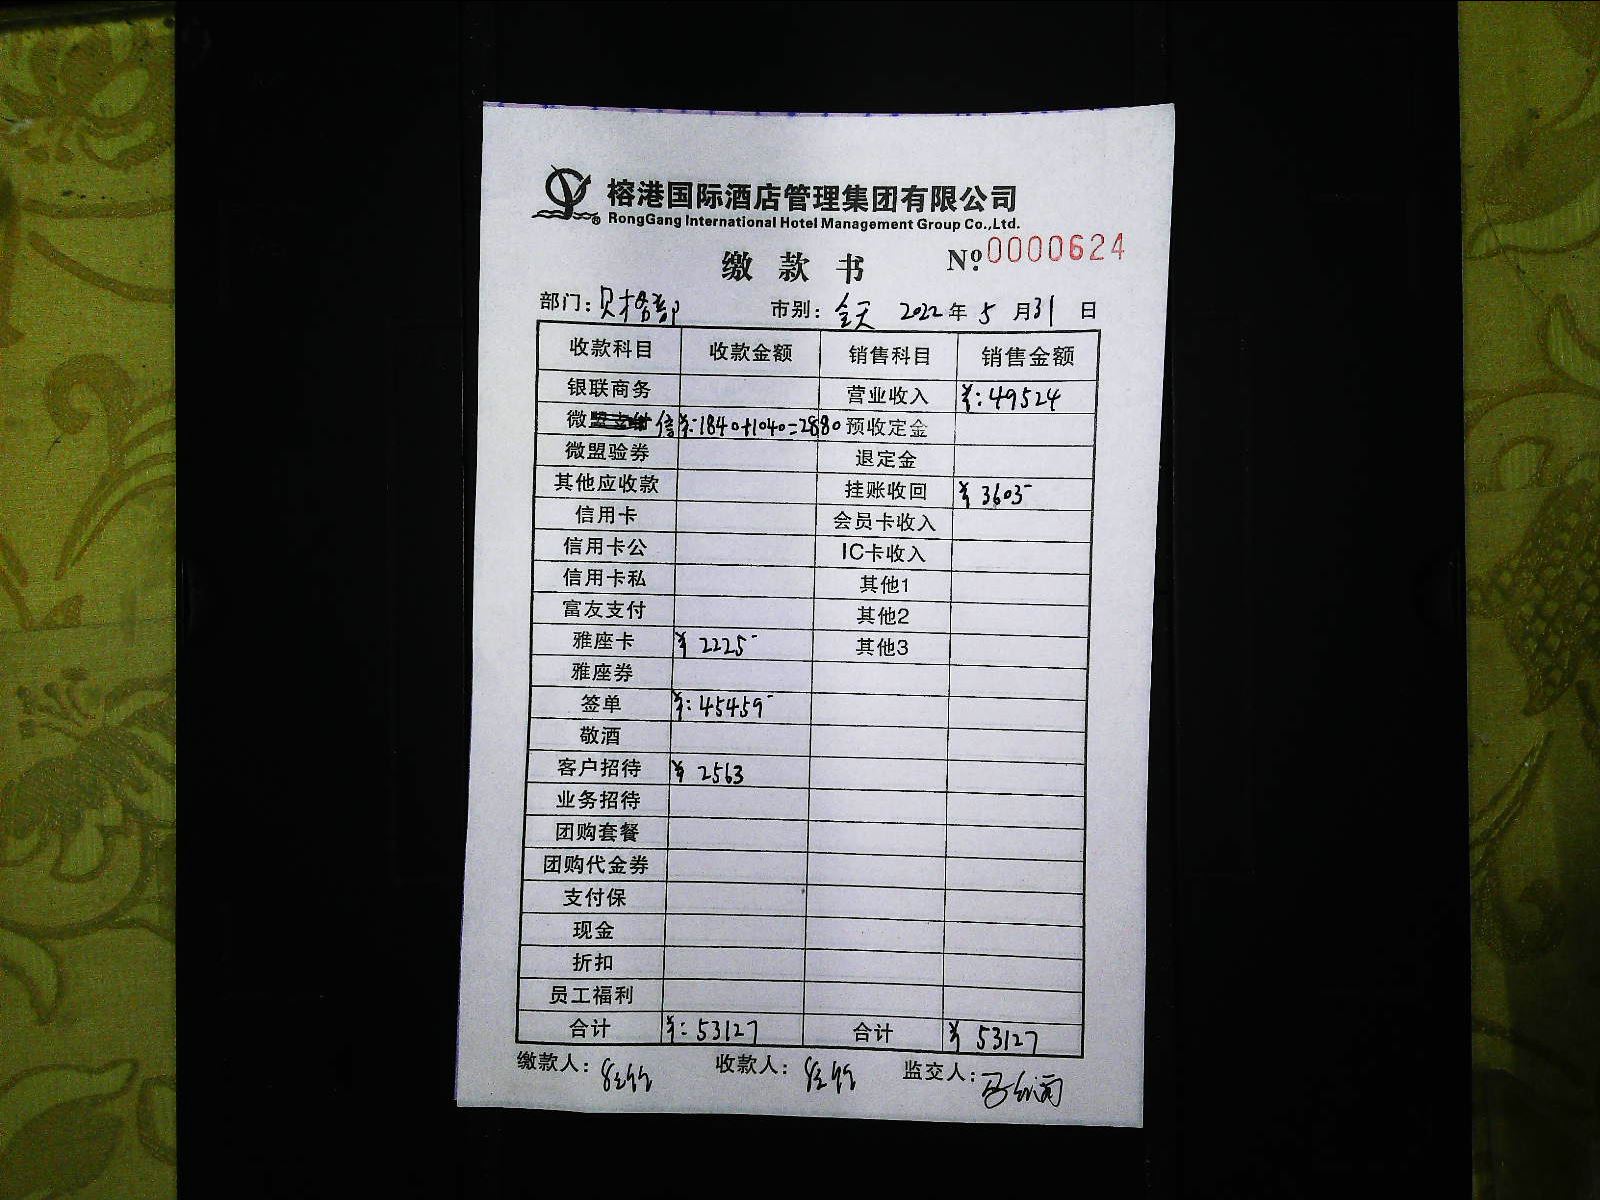 榕港国际酒店管理集团有限公司
RongGang International Hotel Management Group Co.,Ltd.
缴款书 № 0000624
部门: 市别: 全天 2022年5月31日
收款科目 收款金额 销售科目 销售金额
银联商务 营业收入 ¥:49524
微信 ¥:1840+1040=2880 预收定金
微盟验券 退定金
其他应收款 挂账收回 ¥3605
信用卡 会员卡收入
信用卡公 IC卡收入
信用卡私 其他1
富友支付 其他2
雅座卡 ¥2225 其他3
雅座券
签单 ¥:45459
敬酒
客户招待 ¥2563
业务招待
团购套餐
团购代金券
支付保
现金
折扣
员工福利
合计 ¥:53127 合计 ¥53127
缴款人: 收款人: 监交人: